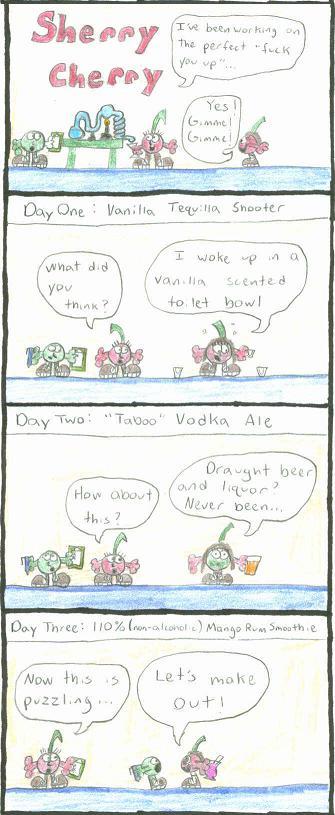 Sherry
Cherry
I've been working on
the perfect "fuck
you up"...
Yes!
Gimme!
Gimme!
Day One: Vanilla Tequilla Shooter
What did
you
think?
I woke up in a
vanilla scented
toilet bowl
Day Two: "Taboo" Vodka Ale
How about
this?
Draught beer
and liquor?
Never been...
Day Three: 110% (non-alcoholic) Mango Rum Smoothie
Now this is
puzzling...
Let's make
out!